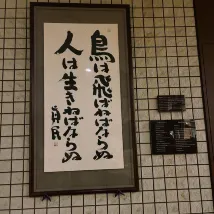 鳥は飛ばねばならぬ
人は生きねばならぬ